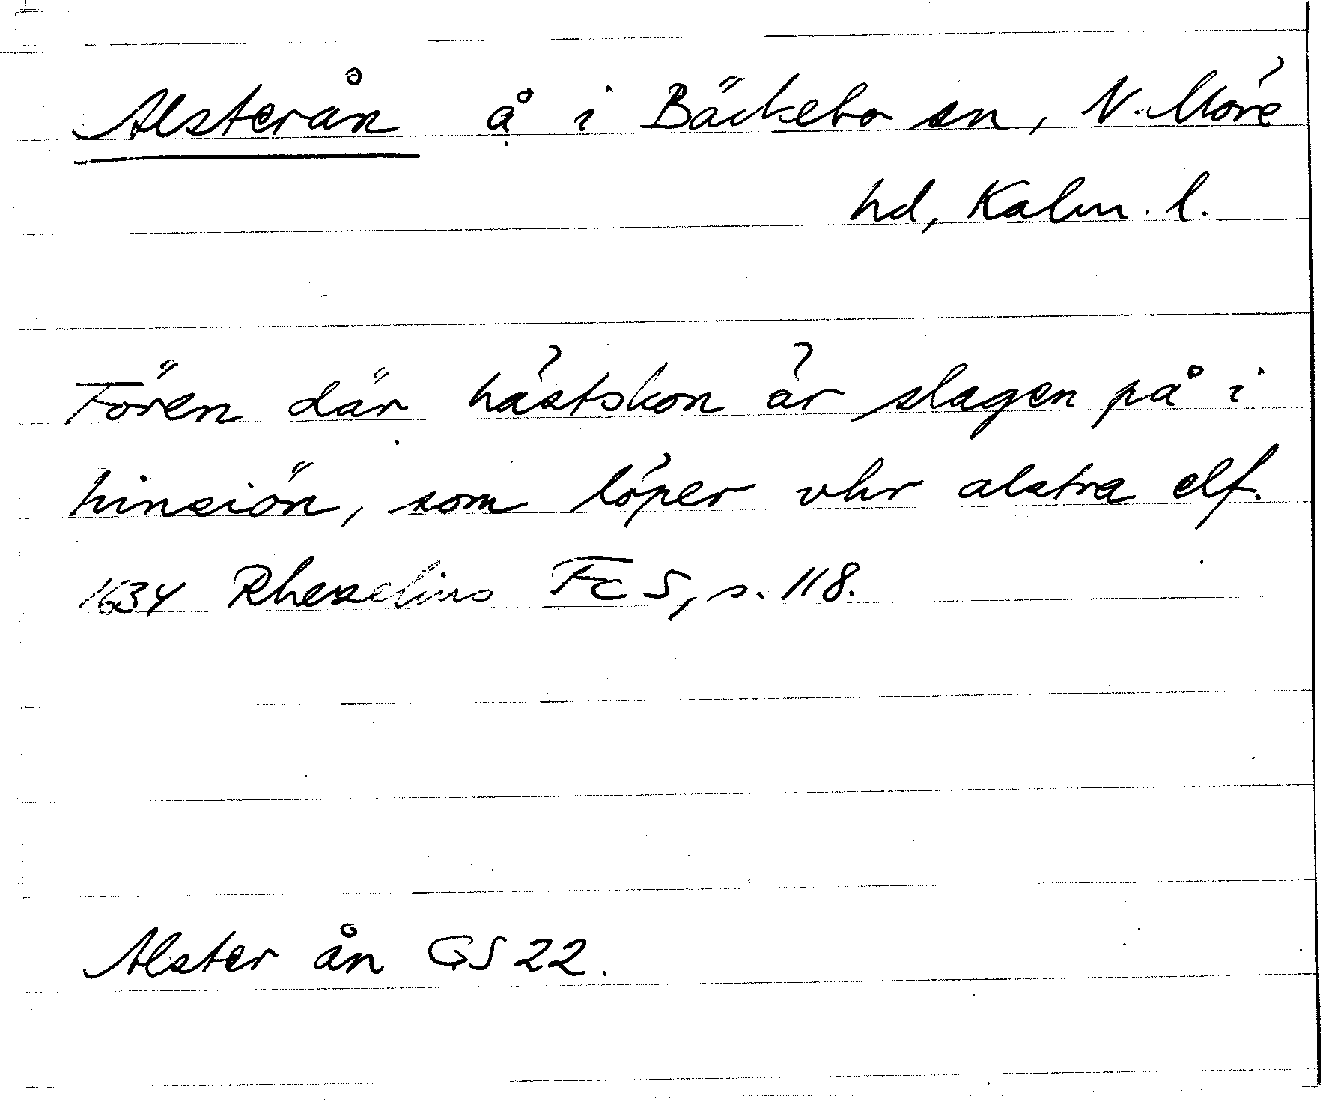 Alsterån å i Bäckebo sn, N. Möre
hd, Kalm. l.
Fören där hästskon är slagen på i
hinsiön, som löper vhr alstra elf.
1634 Rhezelius Fc 5, s. 118.
Alster ån GS 22.